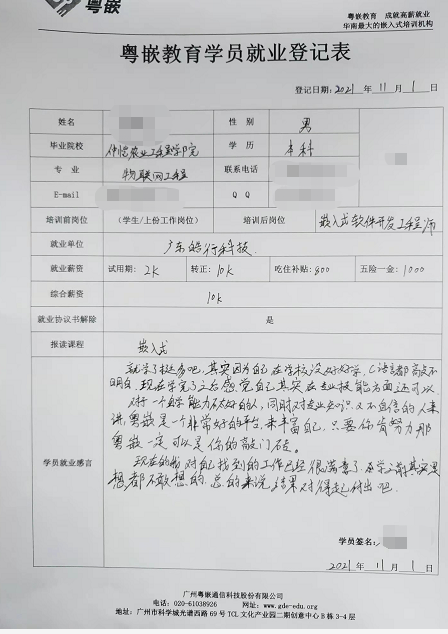 粤嵌
粤嵌教育 成就高薪就业
华南最大的嵌入式培训机构
粤嵌教育学员就业登记表
登记日期：2021 年 11 月 1 日
姓名 性别 男
毕业院校 仲恺农业工程学院 学历 本科
专业 物联网工程 联系电话
E-mail Q Q
培训前岗位 （学生/上份工作岗位） 培训后岗位 嵌入式软件开发工程师
就业单位 广东皓行科技
就业薪资 试用期：2K 转正：10k 吃住补贴：800 五险一金：1000
综合薪资 10k
就业协议书解除 是
报读课程 嵌入式
学员就业感言
就学了挺多吧，其实因为自己在学校没好好学，C语言都搞度不
明白，现在学完了之后感觉自己其实在专业技能方面还可以
对于一个自学能力不太好的人，同时对专业知识又不自信的人来
讲，粤嵌是一个非常好的平台，来丰富自己，只要你肯努力那
粤嵌一定可以是你的敲门砖。
现在的话对自己找到的工作已经很满意了，在学之前其实是
想都不敢想的，总的来说结果对得起付出吧
学员签名：
2021 年 11 月 1 日
广州粤嵌通信科技股份有限公司
电话：020-61038926 网址：www.gde-edu.org
地址：广州市科学城光谱西路 69 号 TCL 文化产业园二期创意中心 B 栋 3-4 层